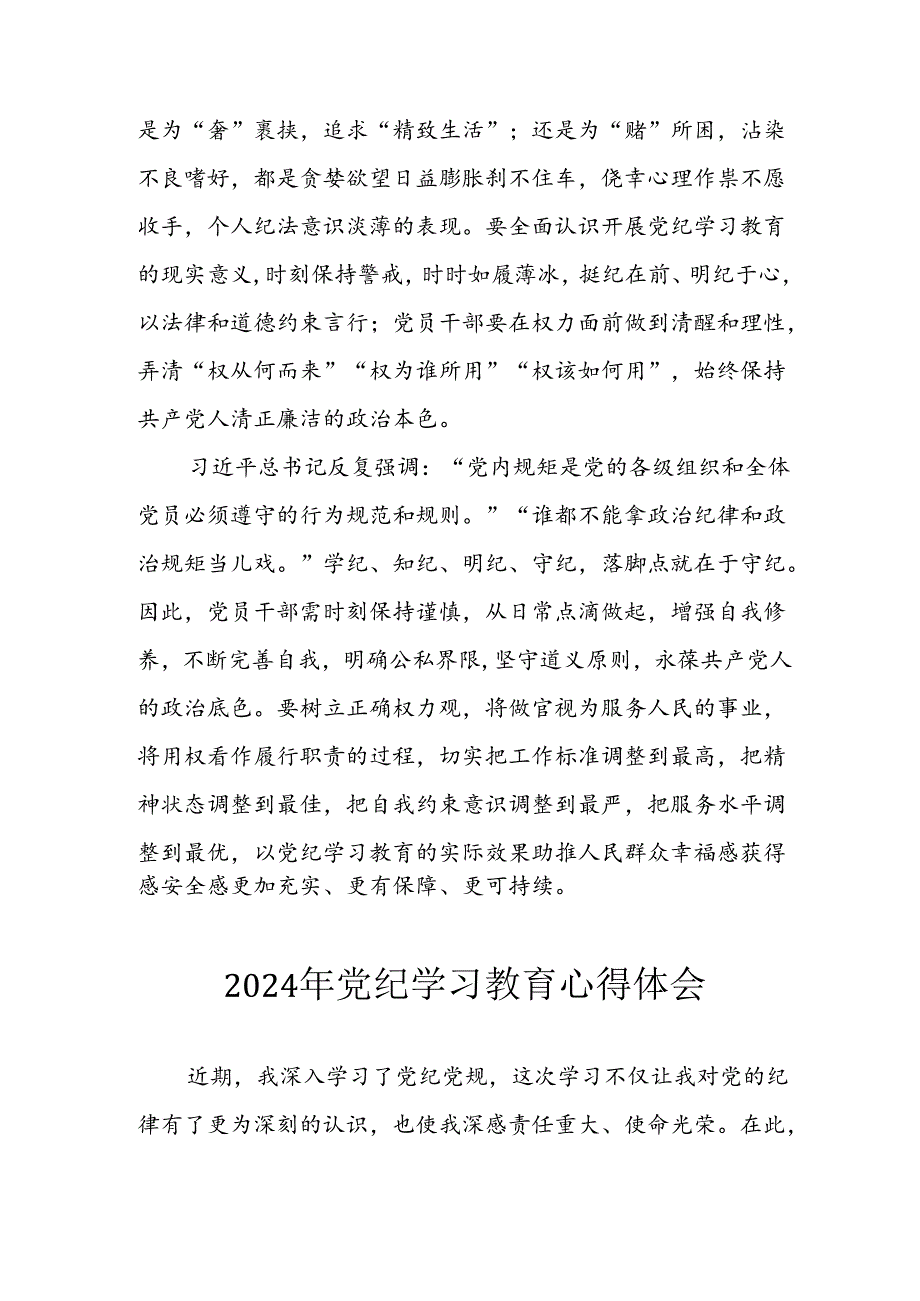 是为“奢”裹挟，追求“精致生活”；还是为“赌”所困，沾染
不良嗜好，都是贪婪欲望日益膨胀刹不住车，侥幸心理作祟不愿
收手，个人纪法意识淡薄的表现。要全面认识开展党纪学习教育
的现实意义，时刻保持警戒，时时如履薄冰，挺纪在前、明纪于心，
以法律和道德约束言行；党员干部要在权力面前做到清醒和理性，
弄清“权从何而来”“权为谁所用”“权该如何用”，始终保持
共产党人清正廉洁的政治本色。
习近平总书记反复强调：“党内规矩是党的各级组织和全体
党员必须遵守的行为规范和规则。”“谁都不能拿政治纪律和政
治规矩当儿戏。”学纪、知纪、明纪、守纪，落脚点就在于守纪。
因此，党员干部需时刻保持谨慎，从日常点滴做起，增强自我修
养，不断完善自我，明确公私界限，坚守道义原则，永葆共产党人
的政治底色。要树立正确权力观，将做官视为服务人民的事业，
将用权看作履行职责的过程，切实把工作标准调整到最高，把精
神状态调整到最佳，把自我约束意识调整到最严，把服务水平调
整到最优，以党纪学习教育的实际效果助推人民群众幸福感获得
感安全感更加充实、更有保障、更可持续。
2024年党纪学习教育心得体会
近期，我深入学习了党纪党规，这次学习不仅让我对党的纪
律有了更为深刻的认识，也使我深感责任重大、使命光荣。在此，